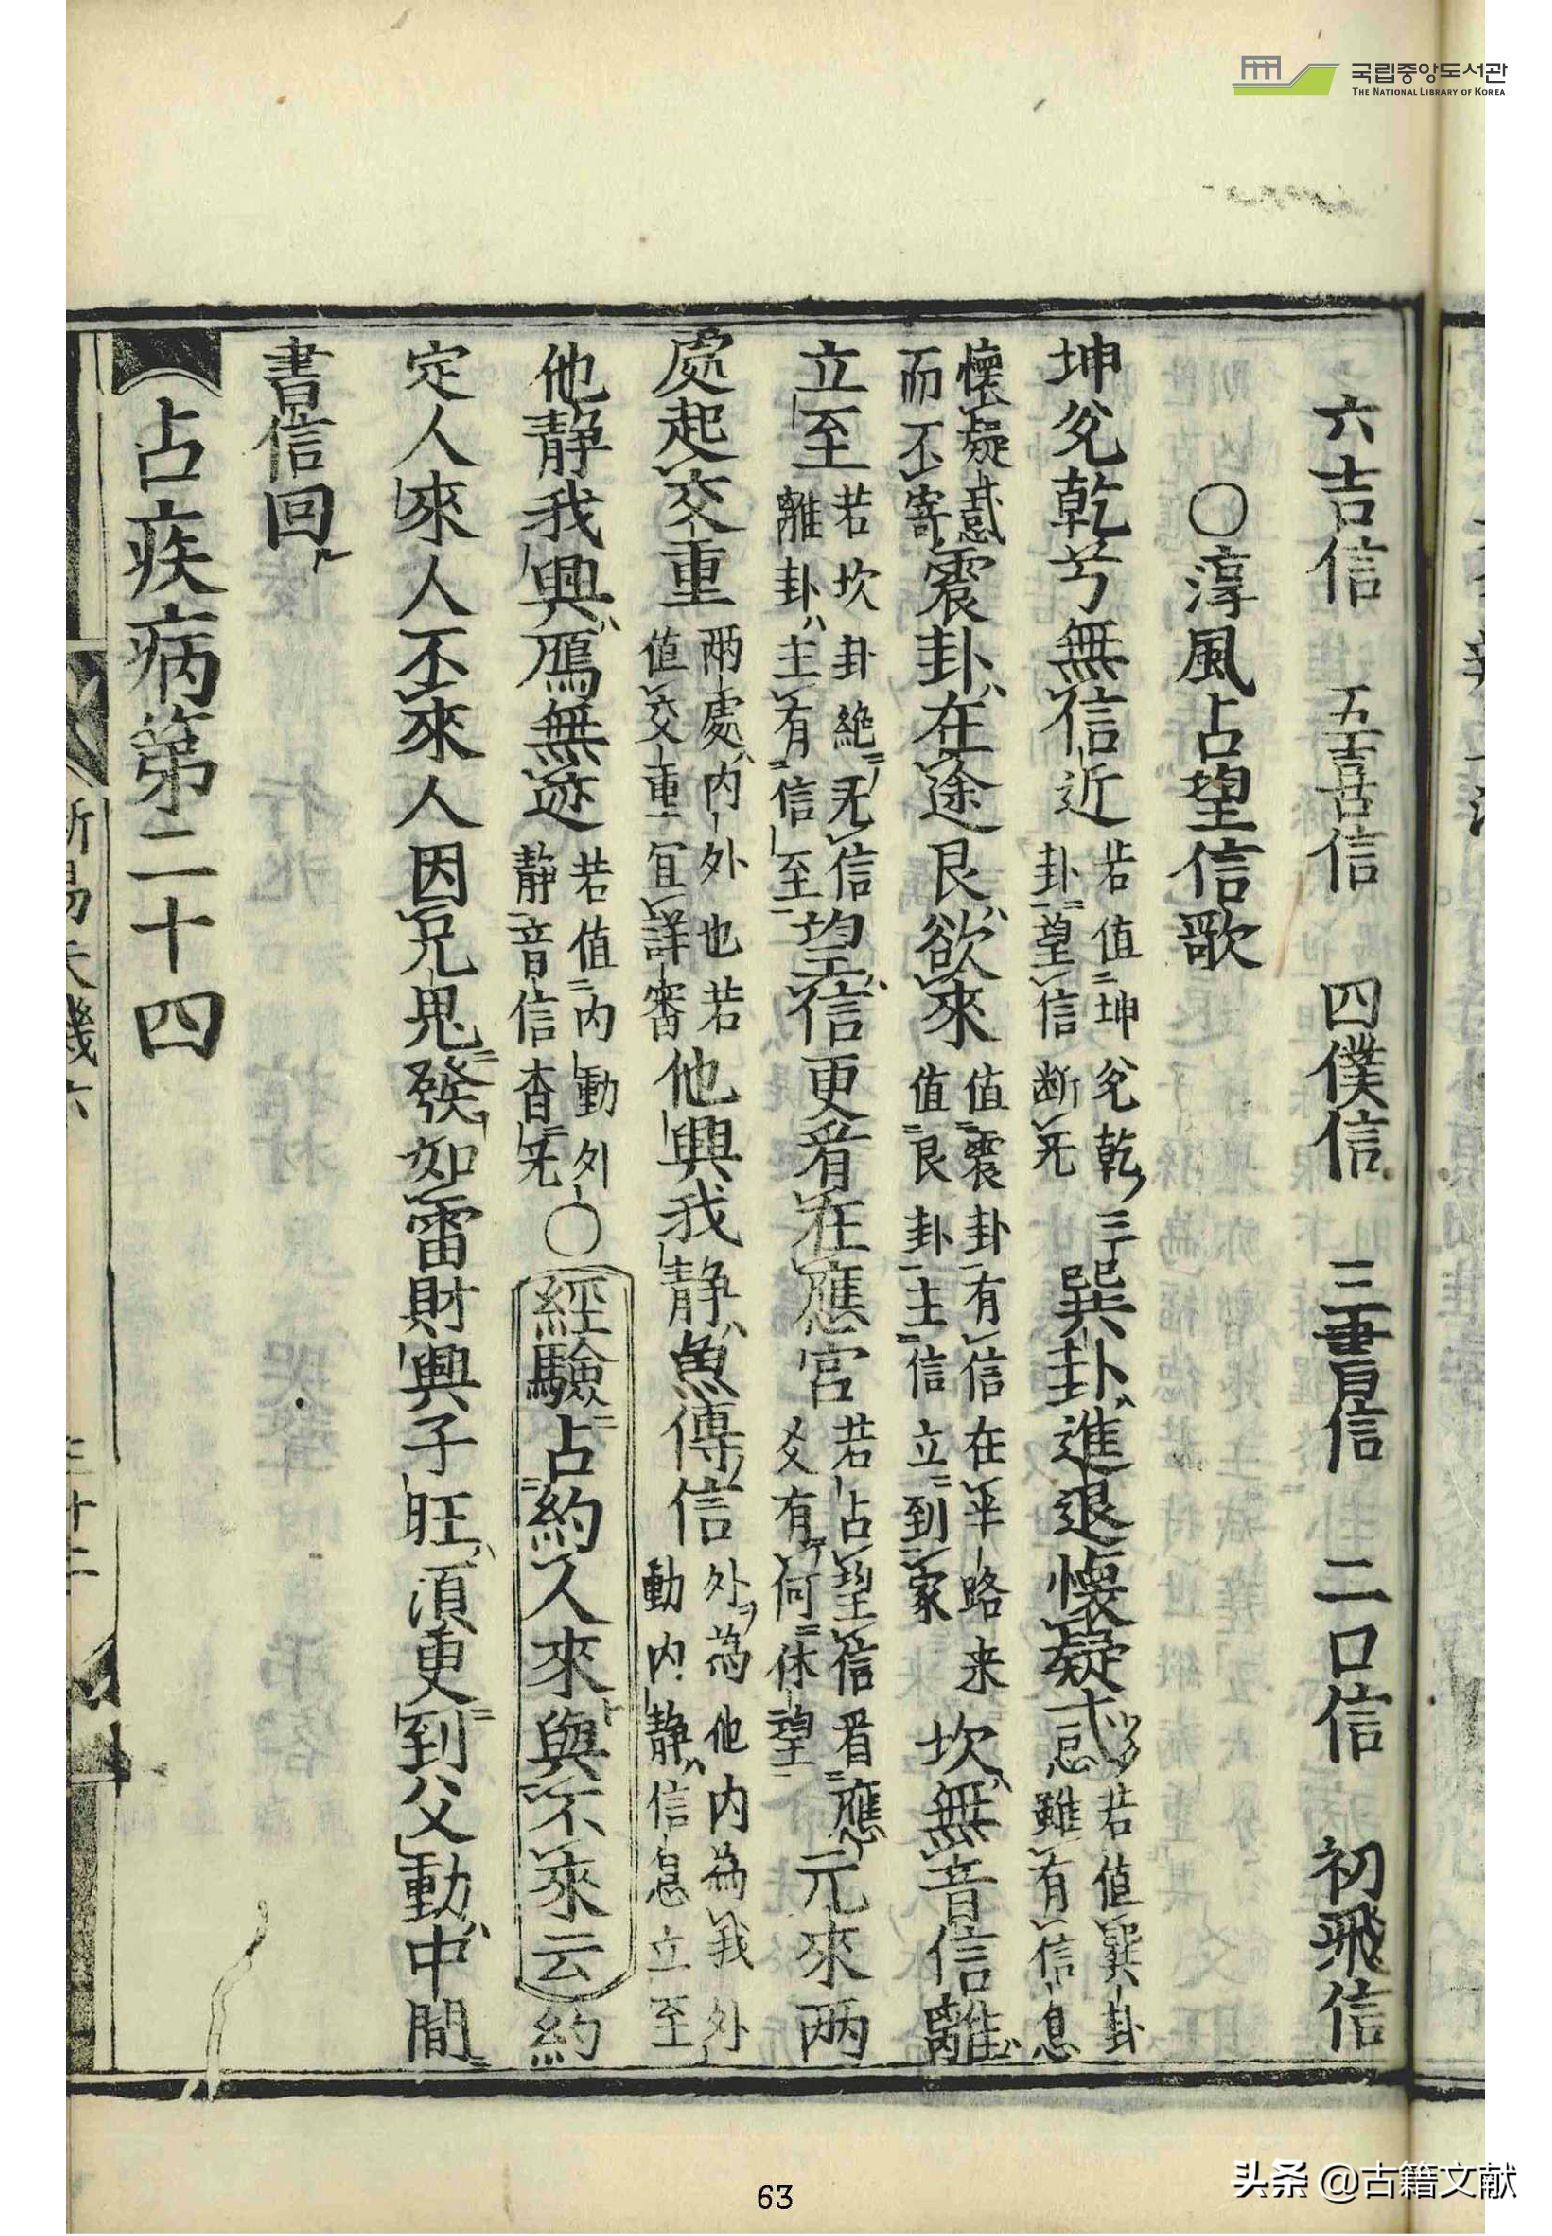 국립중앙도서관
THE NATIONAL LIBRARY OF KOREA
六吉信 五喜信 四僕信 三書信 二口信 初飛信
○淳風占望信歌
坤兌乾兮無信近若值坤兌乾三卦望信断无巽卦進退懷疑惑若值巽卦雖有信息
懷疑惑而不寄震卦在途艮欲來值震卦有信在半路来值艮卦主信立到家坎無音信離
立至若坎卦絶无信離卦主有信至望信更看在應宮若占望信看應爻有何休望元來两
處起交重两處内外也若值交重宜詳審他興我静魚傳信外為他内為我外動内静信息立至
他静我興鴈無迹若值内動外静音信杳无○經驗占約人來與不來云約
定人來人不來人因兄鬼發如雷財興子旺須更到父動中間
書信回
占疾病第二十四
易天機六
二十二
63
头条 @古籍文献